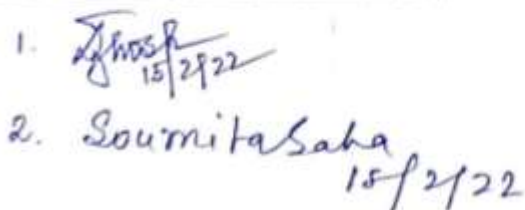 1. Ghosh
15/2/22
2. Soumita Saha
15/2/22